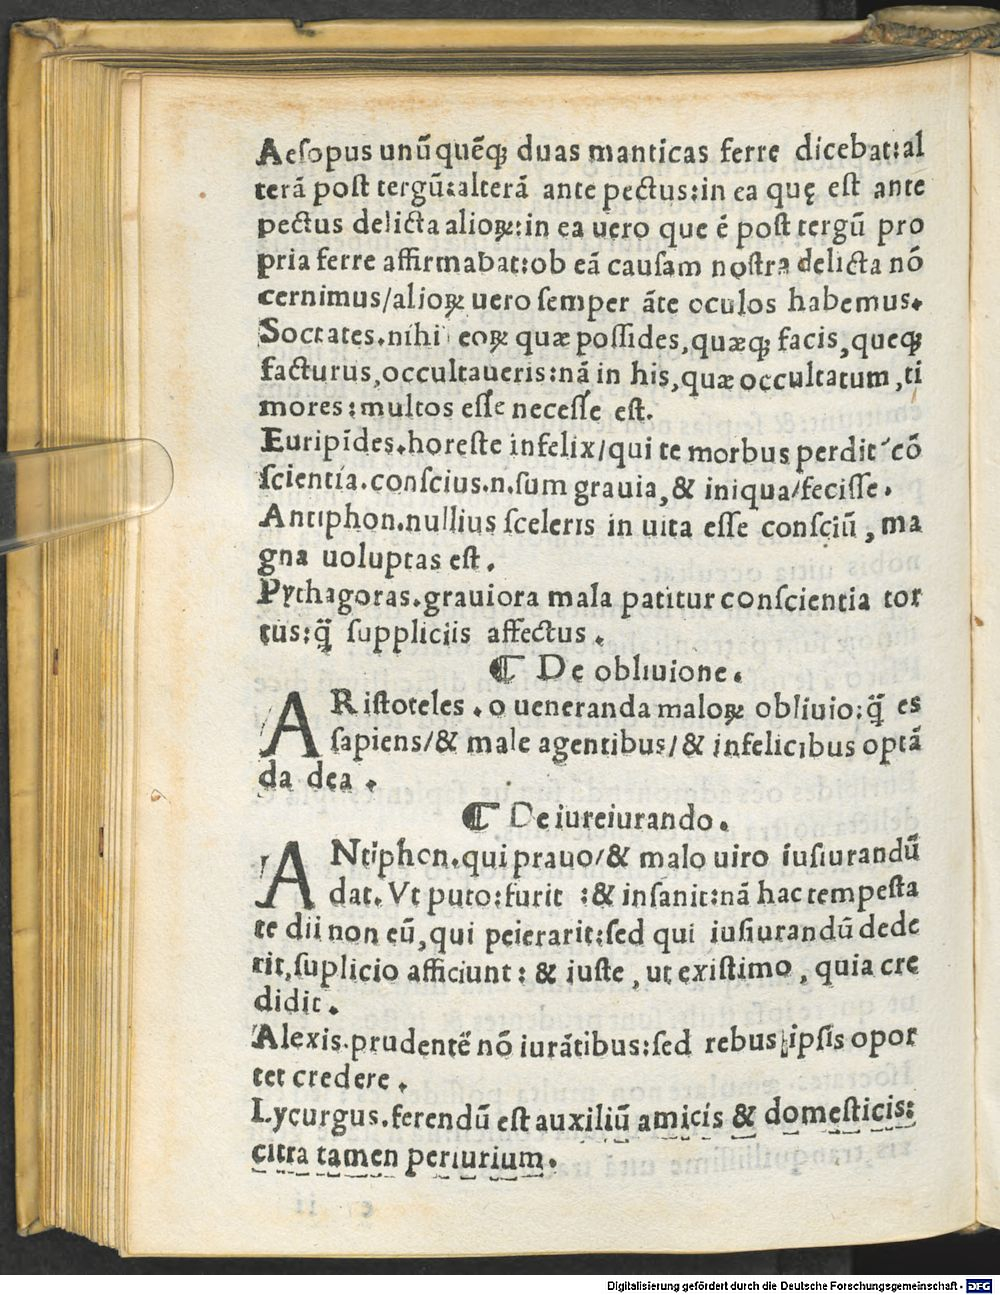 Aeſopus unũquẽq; duas manticas ferre dicebat:al
terã poſt tergũ:alterã ante pectus:in ea quę eſt ante
pectus delicta alioꝝ:in ea uero que ẽ poſt tergũ pro
pria ferre affirmabat:ob eã cauſam noſtra delicta nõ
cernimus/alioꝝ uero ſemper ãte oculos habemus.
Socrates.nihi eoꝝ quæ poſſides,quæq; facis,queq;
facturus,occultaueris:nã in his,quæ occultatum,ti
mores:multos eſſe neceſſe eſt.
Euripides.horeſte infelix/qui te morbus perdit cõ
ſcientia.conſcius.n.ſum grauia,& iniqua/feciſſe.
Antiphon.nullius ſceleris in uita eſſe conſciũ, ma
gna uoluptas eſt.
Pythagoras.grauiora mala patitur conſcientia tor
tus:q̃ ſuppliciis affectus.
¶ De obliuione.
ARiſtoteles.o ueneranda maloꝝ obliuio:q̃ es
ſapiens/& male agentibus/& infelicibus optã
da dea.
¶ De iureiurando.
ANtiphon.qui prauo/& malo uiro iuſiurandũ
dat.Vt puto:furit :& inſanit:nã hac tempeſta
te dii non eũ,qui peierarit:ſed qui iuſiurandũ dede
rit,ſuplicio afficiunt: & iuſte, ut exiſtimo, quia cre
didit.
Alexis.prudentẽ nõ iurãtibus:ſed rebus ipſis opor
tet credere.
Lycurgus.ferendũ eſt auxiliũ amicis & domeſticis:
citra tamen periurium.
Digitalisierung gefördert durch die Deutsche Forschungsgemeinschaft - DFG